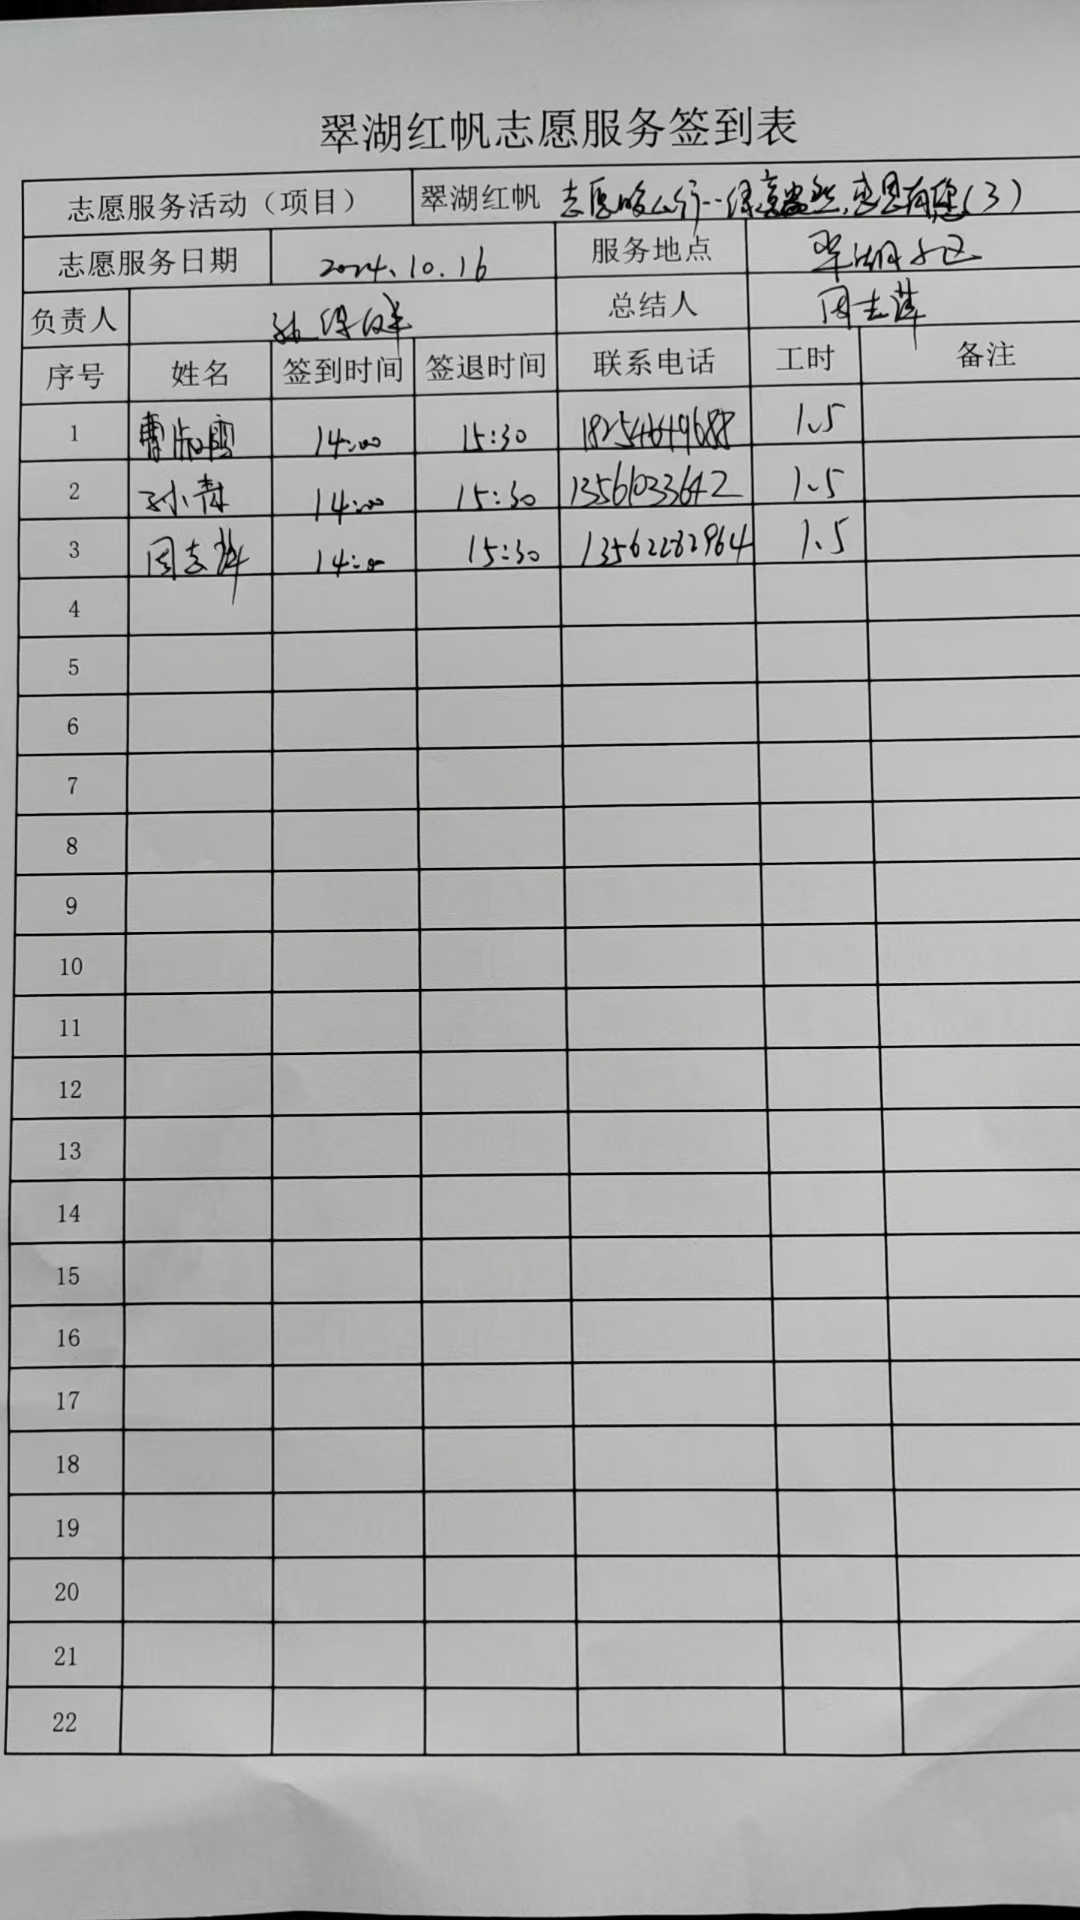 翠湖红帆志愿服务签到表
志愿服务活动（项目） 翠湖红帆 志愿 (3)
志愿服务日期 2024.10.16 服务地点 翠湖小区
负责人 总结人 周志萍
序号 姓名 签到时间 签退时间 联系电话 工时 备注
1 曹淑霞 14:00 15:30 18254649688 1.5
2 孙青 14:00 15:30 13561033642 1.5
3 周志萍 14:00 15:30 13562282964 1.5
4
5
6
7
8
9
10
11
12
13
14
15
16
17
18
19
20
21
22